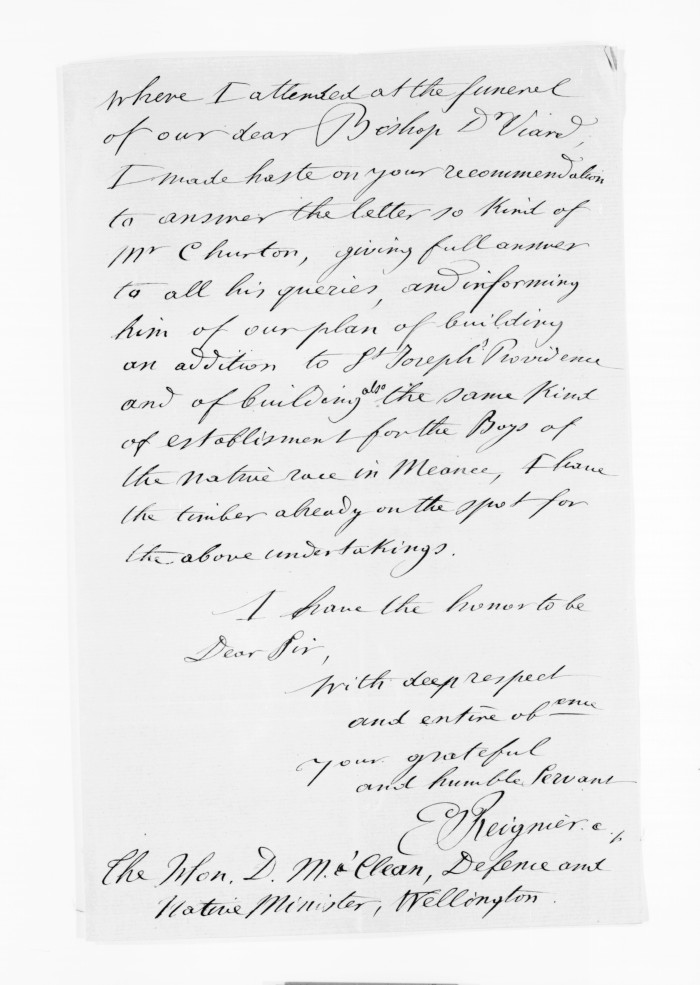 where I attended at the funeral
of our dear Bishop Dr Viard,
I made haste on your recommendation
to answer the letter so kind of
Mr Churton, giving full answer
to all his queries, and informing
him of our plan of building
an addition to St Joseph's Providence
and of building also the same kind
of establisment for the Boys of
the native race in Meanee, I have
the timber already on the spot for
the above undertakings.
I have the honor to be
Dear Sir,
with deep respect
and entire obence
your grateful
and humble Servant
E Reignier. c. p
The Hon. D. Mc Clean, Defence and
Native Minister, Wellington.